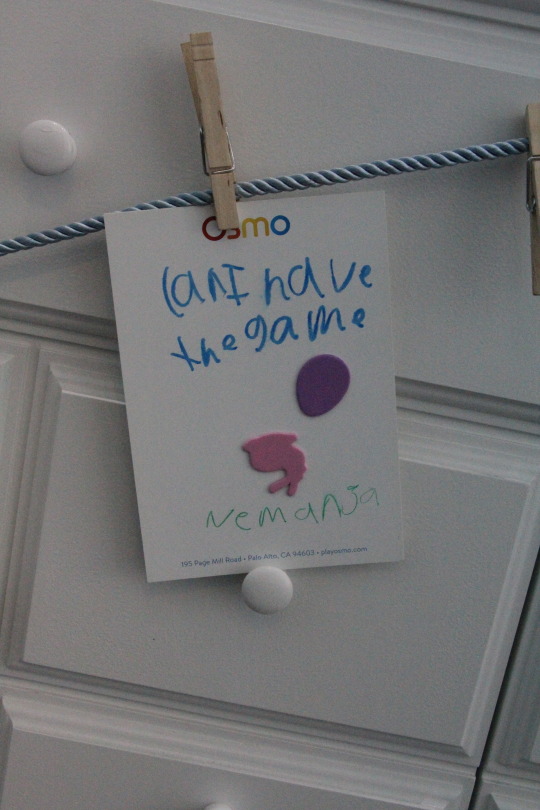 Osmo
Can I have
the game
Nemanja
195 Page Mill Road • Palo Alto, CA 94603 • playosmo.com